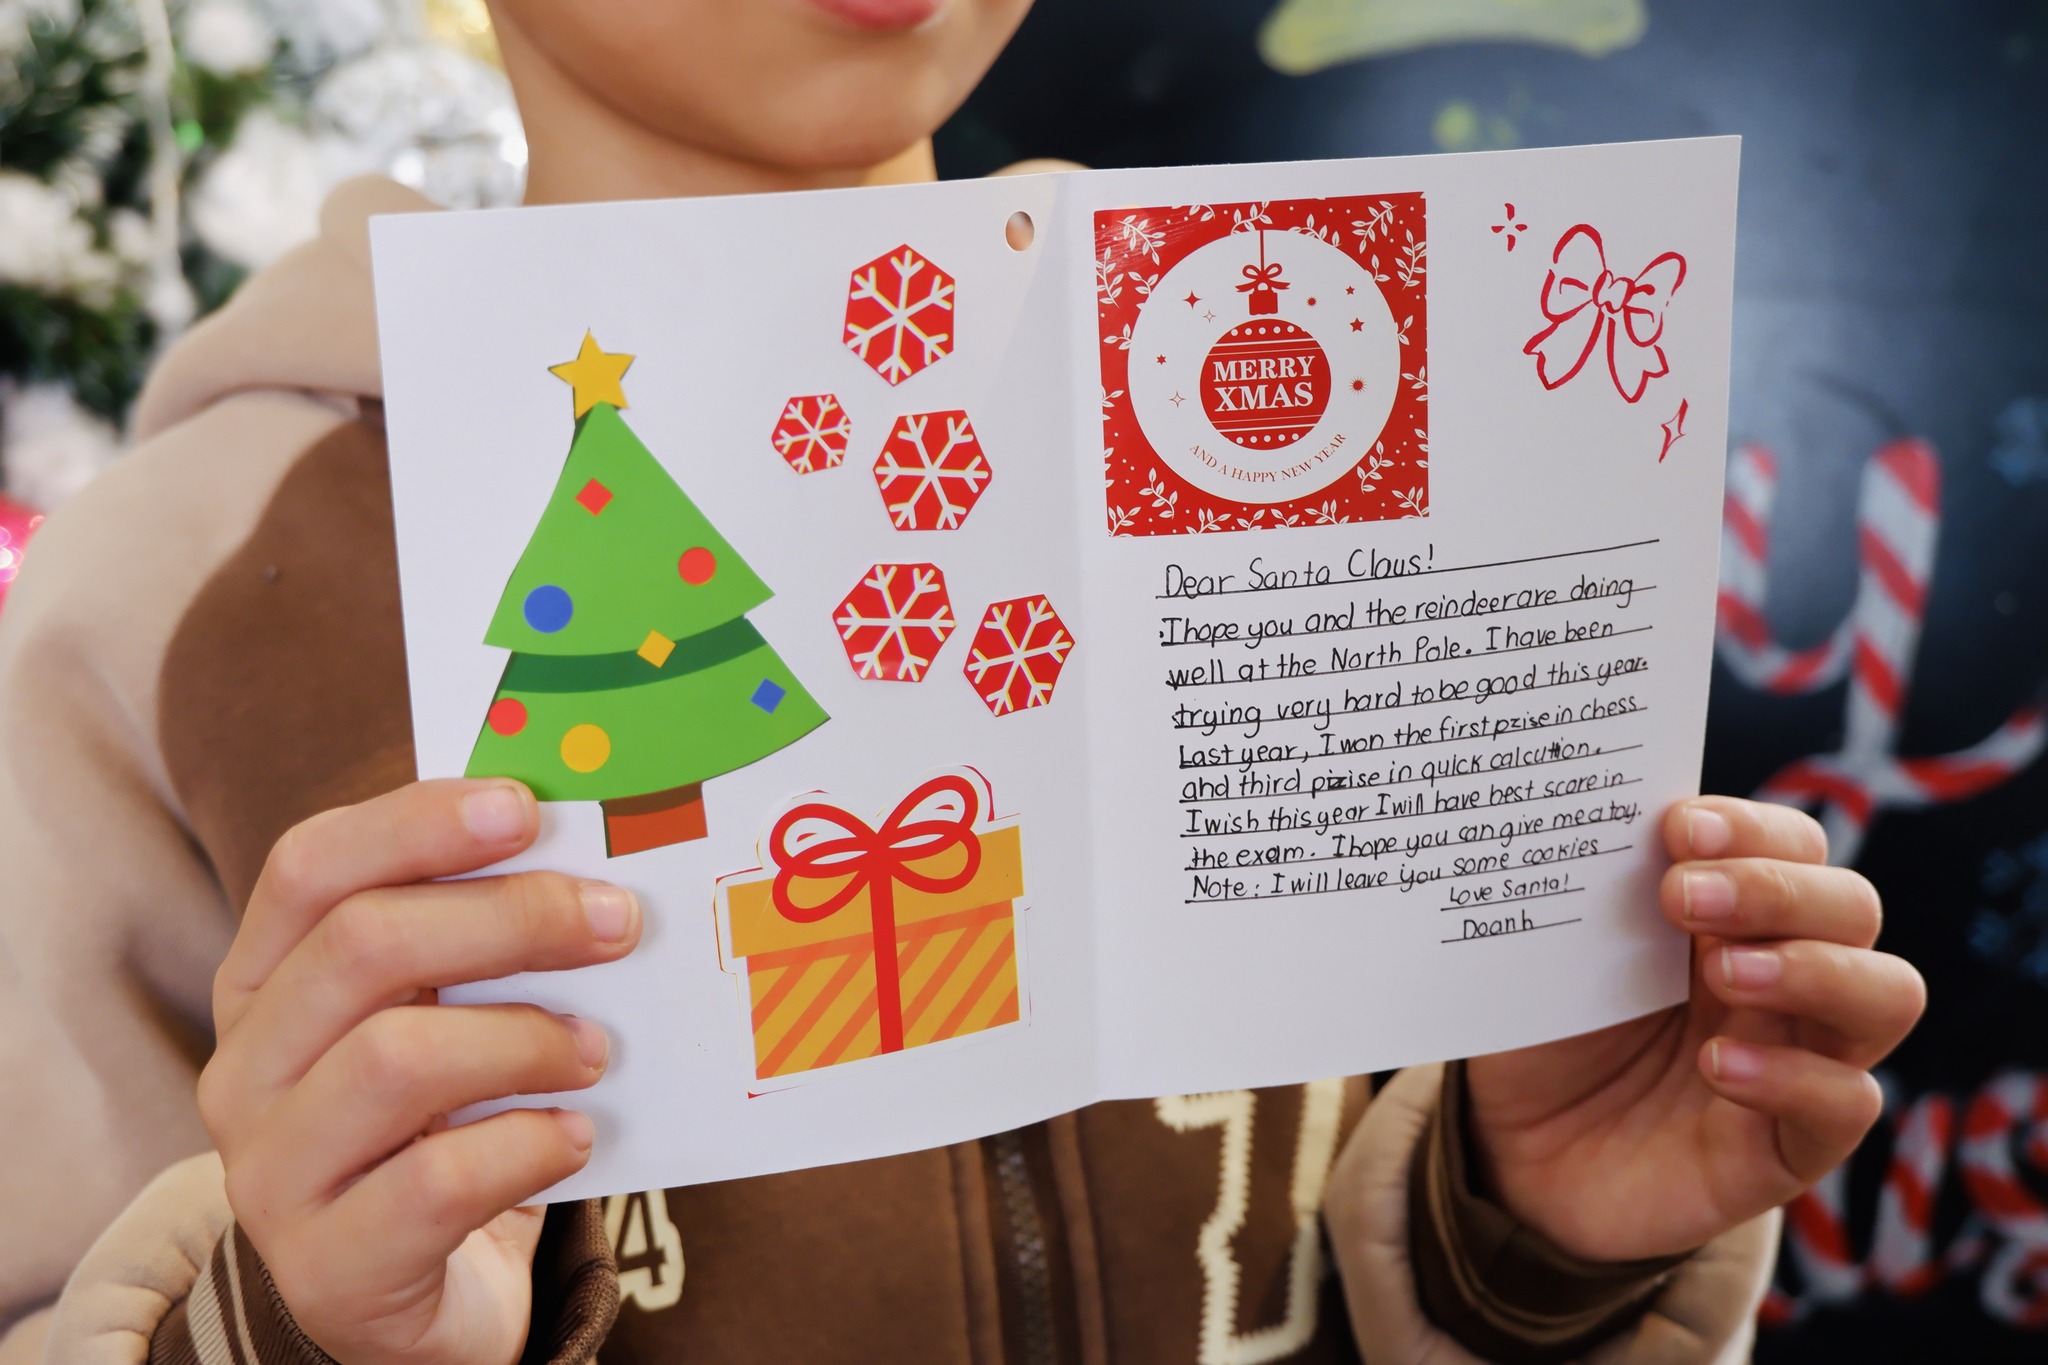 MERRY
XMAS
AND A HAPPY NEW YEAR
Dear Santa Claus!
I hope you and the reindeer are doing
well at the North Pole. I have been
trying very hard to be good this year.
Last year, I won the first prise in chess
and third prise in quick calcution.
I wish this year I will have best score in
the exam. I hope you can give me a toy.
Note: I will leave you some cookies
Love Santa!
Doanh
4